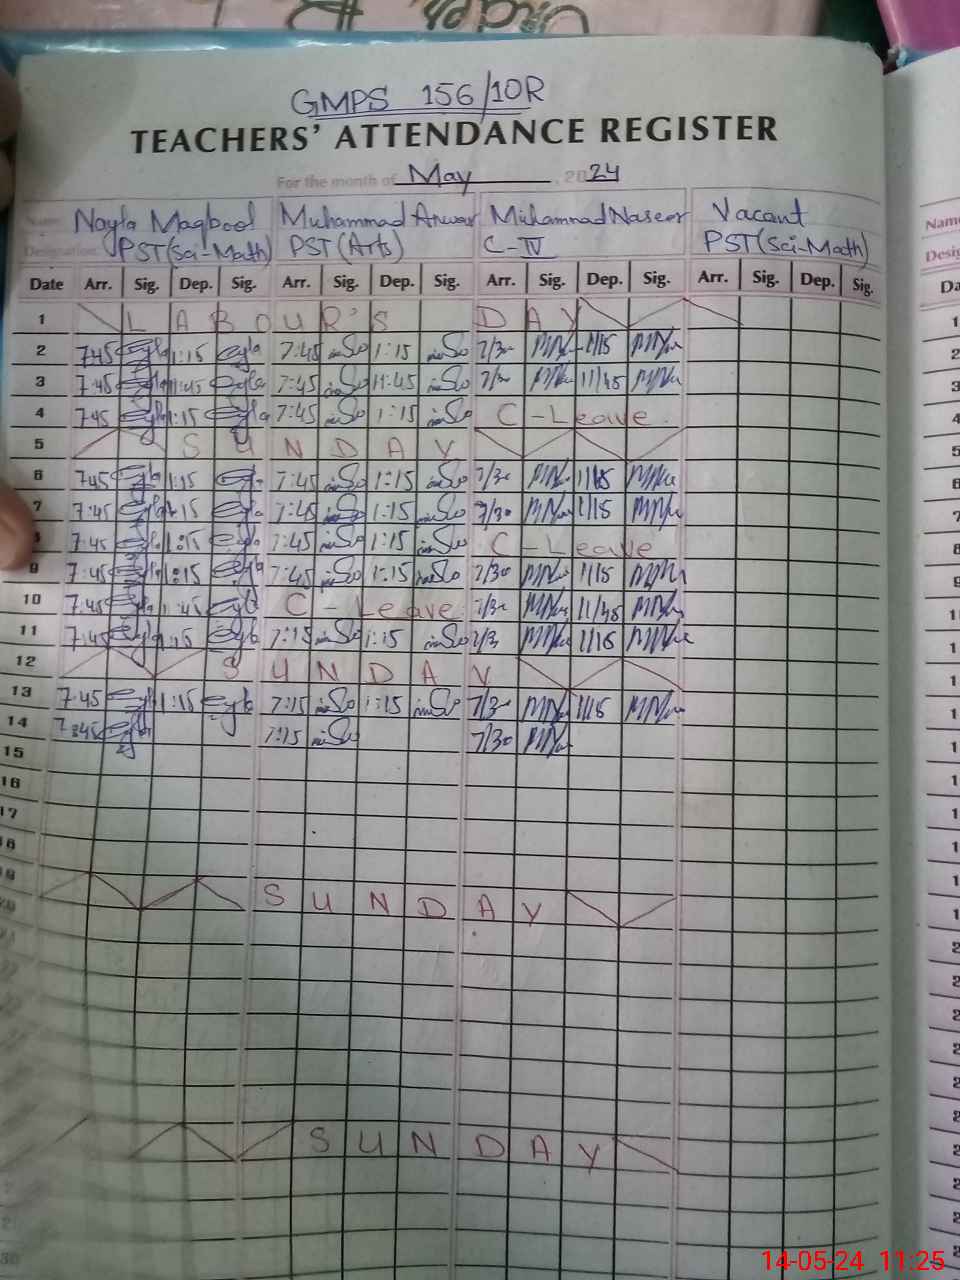 GMPS 156/10R
TEACHERS' ATTENDANCE REGISTER
For the month of May, 2024
Name Nayla Maqbool Muhammad Anwar Muhammad Naseer Vacant
PST(Sci-Math) PST(Arts) C-IV PST(Sci-Math)
Date Arr. Sig. Dep. Sig. Arr. Sig. Dep. Sig. Arr. Sig. Dep. Sig. Arr. Sig. Dep. Sig.
1 LABOUR'S DAY
2 7:45 1:15 7:45 1:15 7/30 1/15
3 7:45 11:45 7:45 11:45 7/30 11/45
4 7:45 1:15 7:45 1:15 C-Leave
5 SUNDAY
6 7:45 1:15 7:45 1:15 7/30 1/15
7 7:45 1:15 7:45 1:15 7/30 1/15
7:45 1:15 7:45 1:15 C-Leave
9 7:45 1:15 7:45 1:15 7/30 1/15
10 7:45 11:45 C-Leave 7/30 11/45
11 7:45 1:15 7:15 1:15 7/30 1/15
12 SUNDAY
13 7:45 1:15 7:15 1:15 7/30 1/15
14 7:45 7:15 7/30
15
16
17
18
19 SUNDAY
20
SUNDAY
30
Name
Desig
14-05-24 11:25